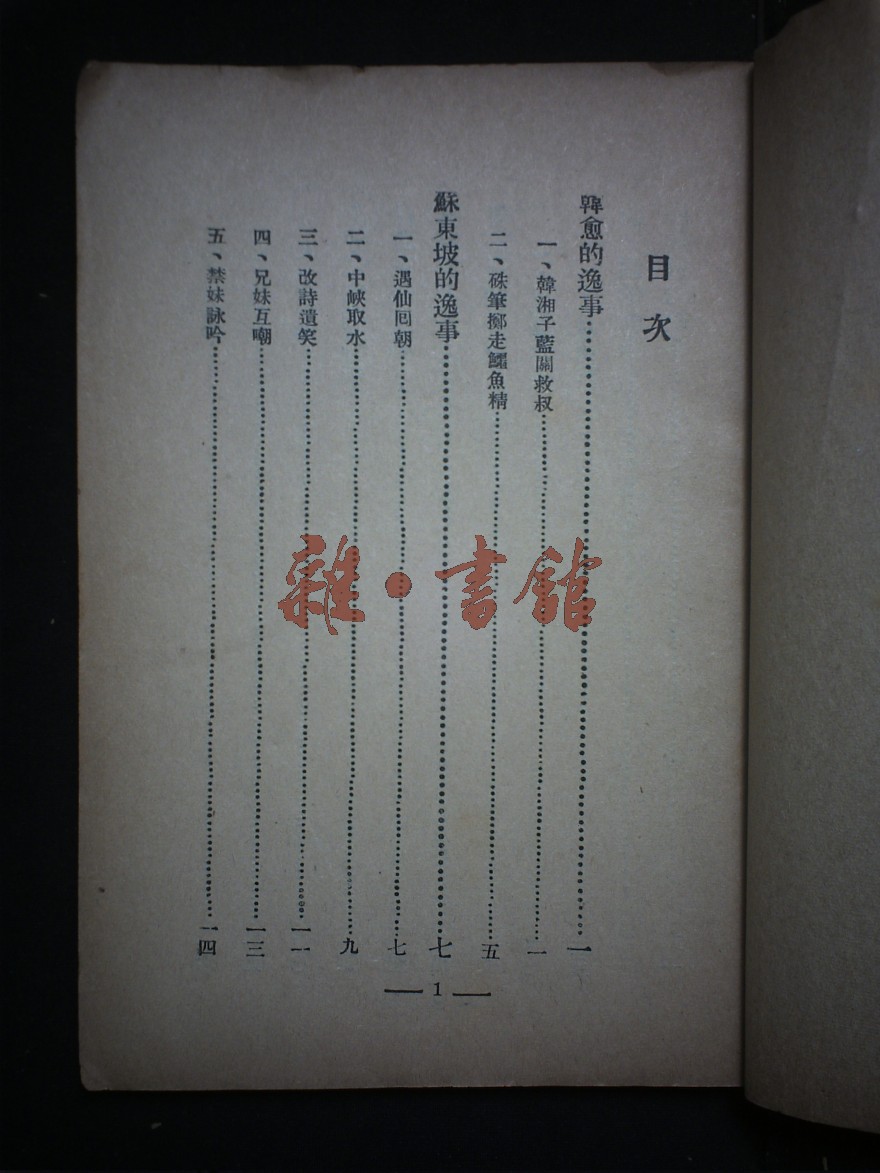 目次
韓愈的逸事……一
一、韓湘子藍關救叔……一
二、硃筆擲走鱷魚精……五
蘇東坡的逸事……七
一、遇仙囘朝……七
二、中峽取水……九
三、改詩遺笑……一一
四、兄妹互嘲……一三
五、禁妹詠吟……一四
— 1 —
雜·書館